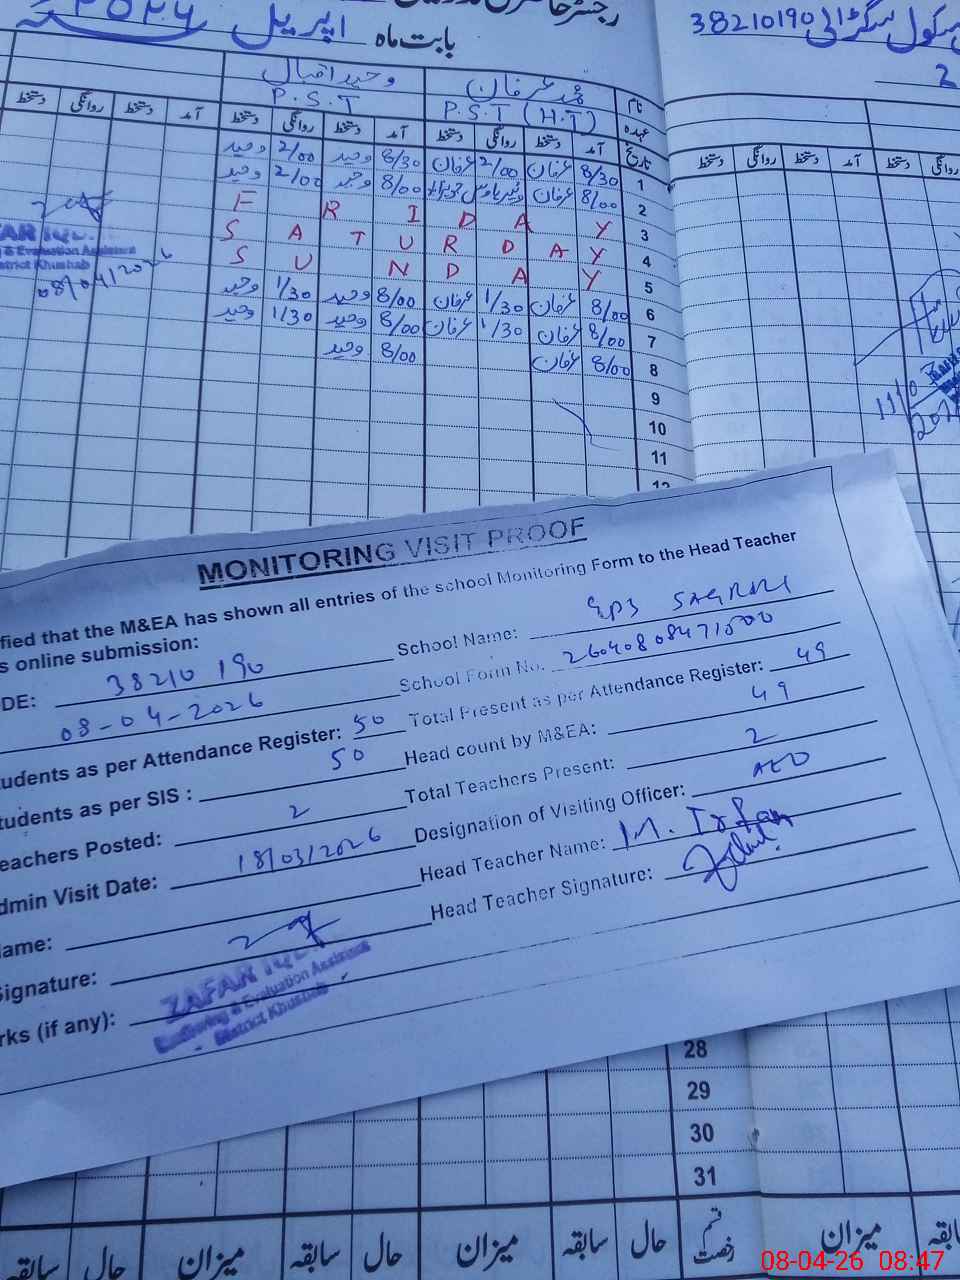 رجسٹر حاضری مدرسین
38210190
بابت ماہ اپریل
وحید اقبال محمد عرفان نام
P.S.T P.S.T (H.T) عہدہ
دستخط روانگی دستخط آمد دستخط روانگی دستخط آمد دستخط روانگی دستخط آمد تاریخ
دستخط روانگی دستخط آمد دستخط روانگی
وحید 2/00 وحید 8/30 عرفان 2/00 عرفان 8/30 1
وحید 2/00 وحید 8/00 عرفان 8/00 2
F R I D A Y 3
S A T U R D A Y 4
S U N D A Y 5
وحید 1/30 وحید 8/00 عرفان 1/30 عرفان 8/00 6
وحید 1/30 وحید 8/00 عرفان 1/30 عرفان 8/00 7
وحید 8/00 عرفان 8/00 8
9
10
11
12
& Evaluation Assistant
District Khushab
08/04/2026
MONITORING VISIT PROOF
fied that the M&EA has shown all entries of the school Monitoring Form to the Head Teacher
s online submission:
DE: 38210190 School Name: GPS SAGRAL
08-04-2026 School Form No. 26040808471500
tudents as per Attendance Register: 50 Total Present as per Attendance Register: 49
tudents as per SIS : 50 Head count by M&EA: 49
eachers Posted: 2 Total Teachers Present: 2
dmin Visit Date: 18/03/2026 Designation of Visiting Officer: AEO
ame: Head Teacher Name: M. Irfan
Signature: Head Teacher Signature:
rks (if any):
ZAFAR IQBAL
Monitoring & Evaluation Assistant
District Khushab
28
29
30
31
سابقہ حال میزان سابقہ حال میزان سابقہ حال قسم رخصت میزان سابقہ
08-04-26 08:47